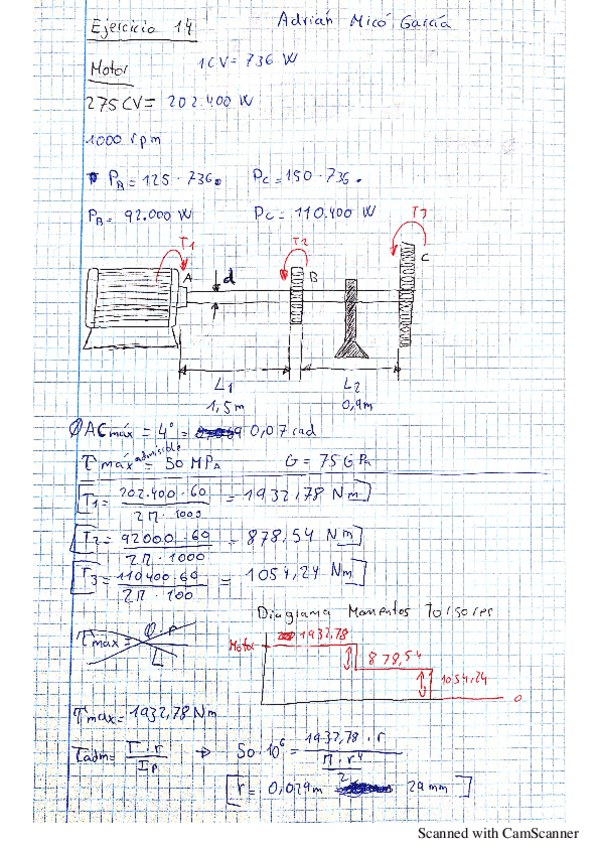 Ejercicio 14
Adrián Micó García
Motor
1CV = 736 W
275CV = 202.400 W
1000 rpm
PB = 125 · 736.
PC = 150 · 736.
PB = 92.000 W
PC = 110.400 W
T1
T2
T3
A
d
B
C
L1
L2
1,5m
0,9m
ØAC máx = 4° = 0,07 rad
τ máx admisible = 50 MPa
G = 75 GPa
T1 = 202.400 · 60 / 2π · 1000 = 1932,78 Nm
T2 = 92000 · 60 / 2π · 1000 = 878,54 Nm
T3 = 110400 · 60 / 2π · 100 = 1054,24 Nm
Diagrama Momentos Torsores
τmáx = Q · P / L
Motor
1932,78
878,54
1054,24
0
Tmáx = 1932,78 Nm
τadm = T · r / Ip → 50 · 10⁶ = 1932,78 · r / π · r⁴ / 2
r = 0,029m 29mm
Scanned with CamScanner